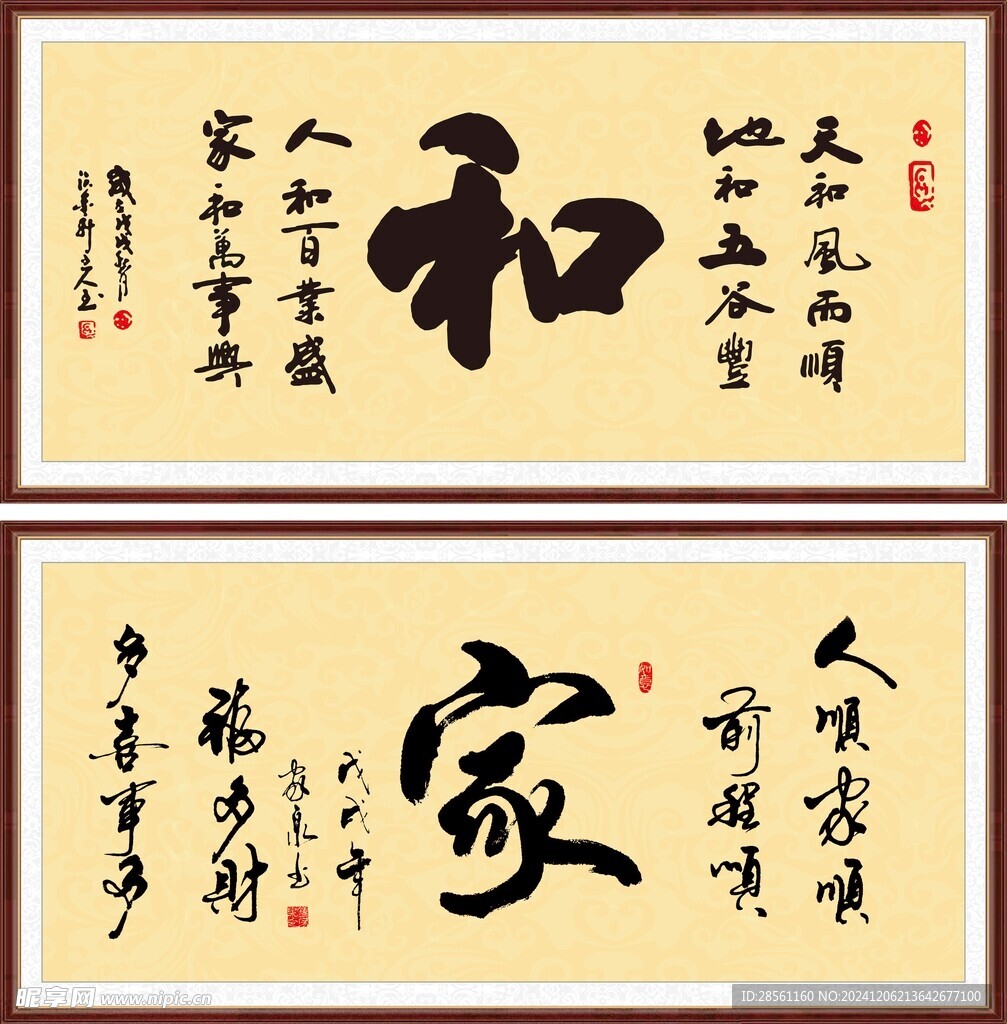 天和風雨順
地和五谷豐
和
人和百業盛
家和萬事興
人順家順
前程順
家
戊戌年
福多財
多喜事多
昵享网 www.nipic.cn
ID:28561160 NO:20241206213642677100